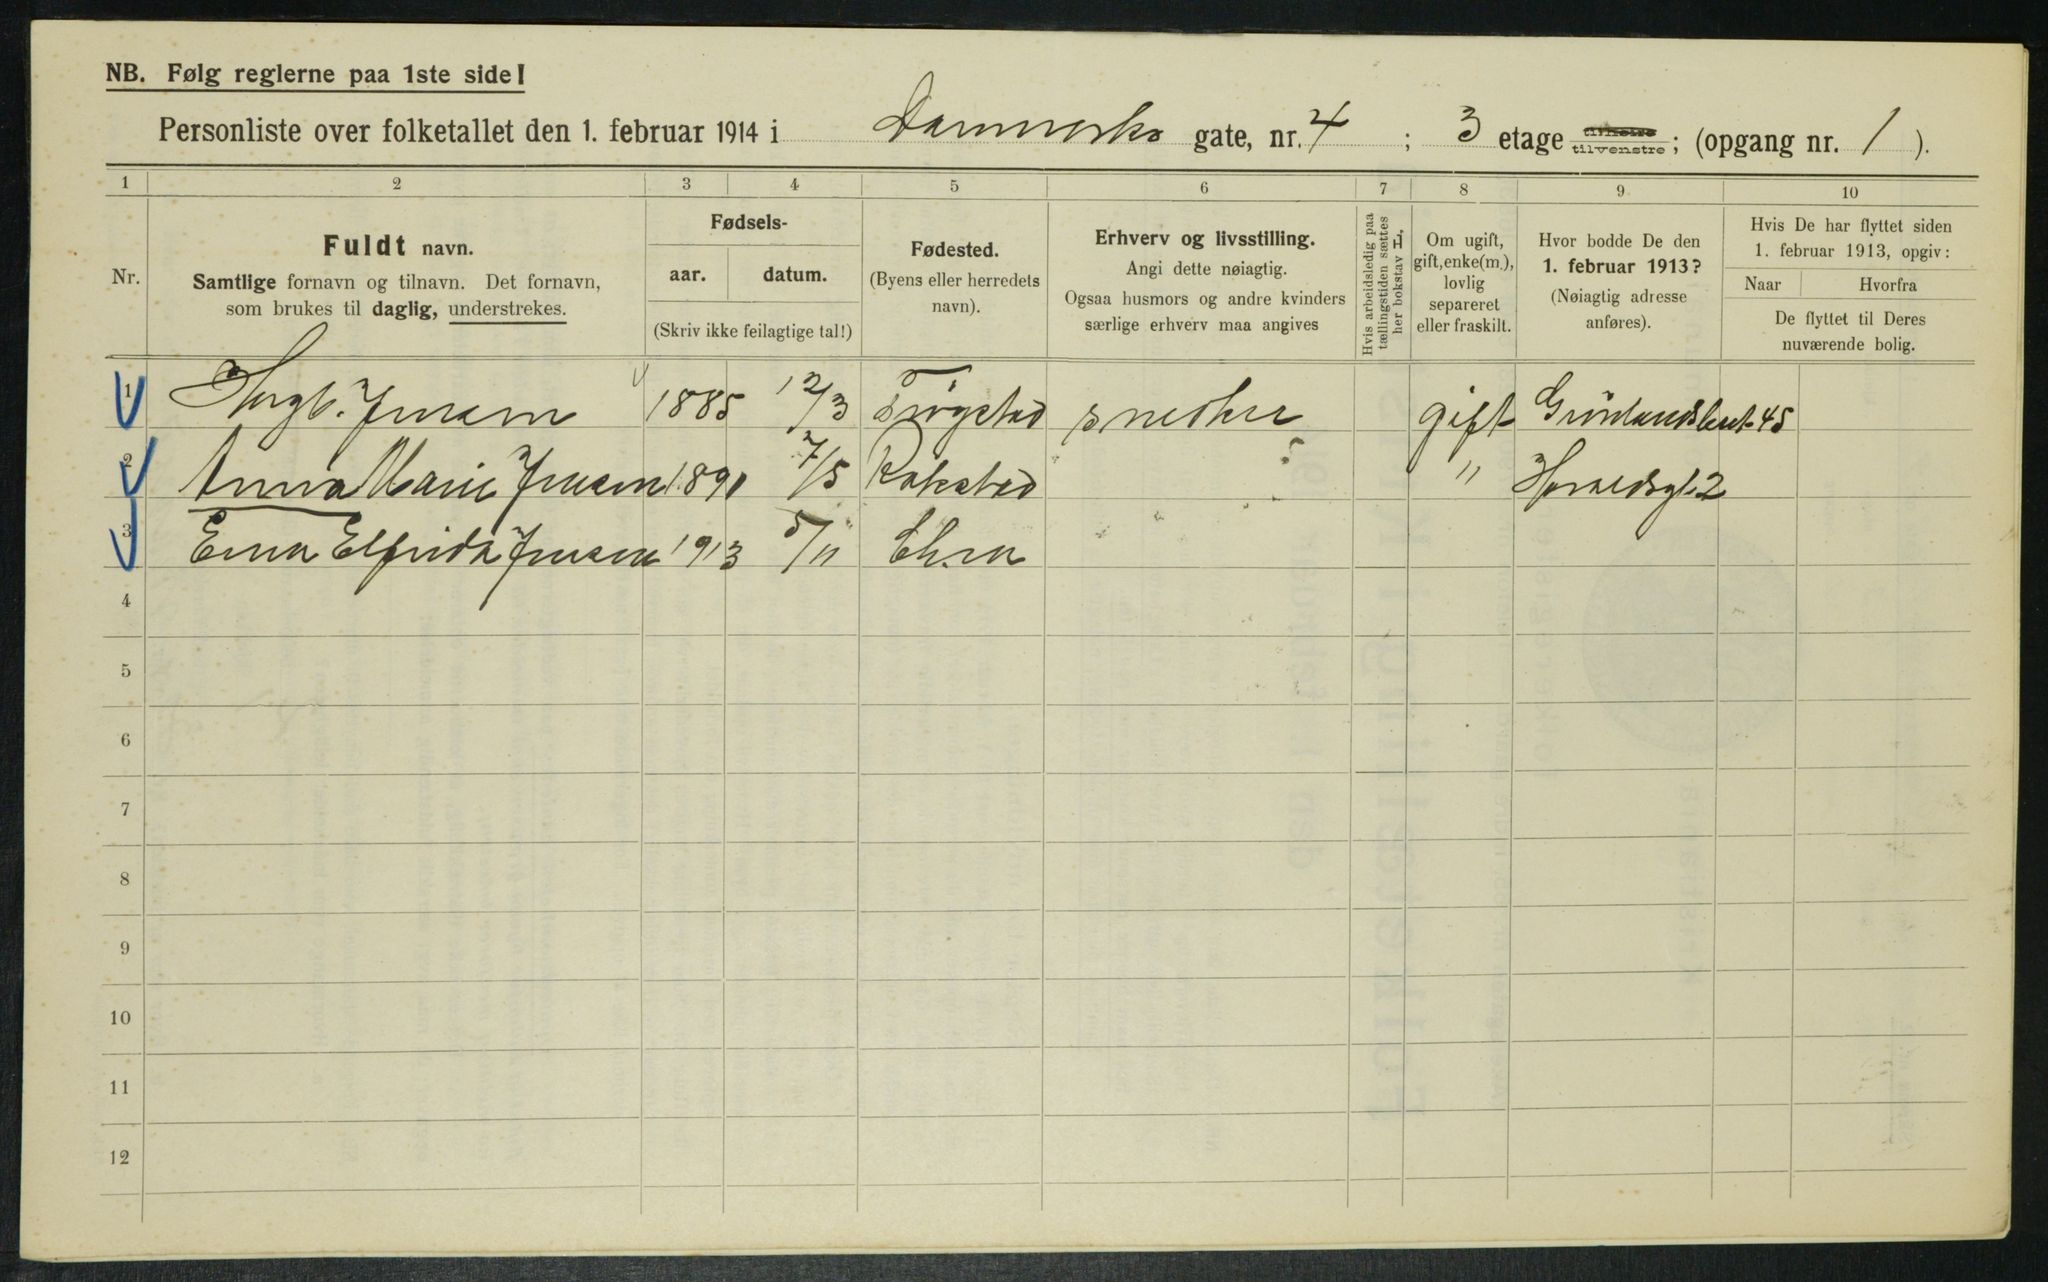 NB. Følg reglerne paa 1ste side!
Personliste over folketallet den 1. februar 1914 i Danmarks gate, nr. 4 ; 3 etage tilvenstre; (opgang nr. 1 ).
1 2 3 4 5 6 7 8 9 10
Nr.
Fuldt navn.
Samtlige fornavn og tilnavn. Det fornavn,
som brukes til daglig, understrekes.
Fødsels-
aar. datum.
(Skriv ikke feilagtige tal!)
Fødested.
(Byens eller herredets
navn).
Erhverv og livsstilling.
Angi dette nøiagtig.
Ogsaa husmors og andre kvinders
særlige erhverv maa angives
Hvis arbeidsledig paa
tællingstiden sættes
her bokstav H.
Om ugift,
gift, enke(m.),
lovlig
separeret
eller fraskilt.
Hvor bodde De den
1. februar 1913?
(Nøiagtig adresse
anføres).
Hvis De har flyttet siden
1. februar 1913, opgiv:
Naar Hvorfra
De flyttet til Deres
nuværende bolig.
1 Jensen 1885 12/3 Trögstad snedker gift Grönlandsleret 45
2 Anna Marie Jensen 1891 7/5 Rakestad " Haraldsgt. 2
3 Erna Elfrida Jensen 1913 5/11 Chra
4
5
6
7
8
9
10
11
12